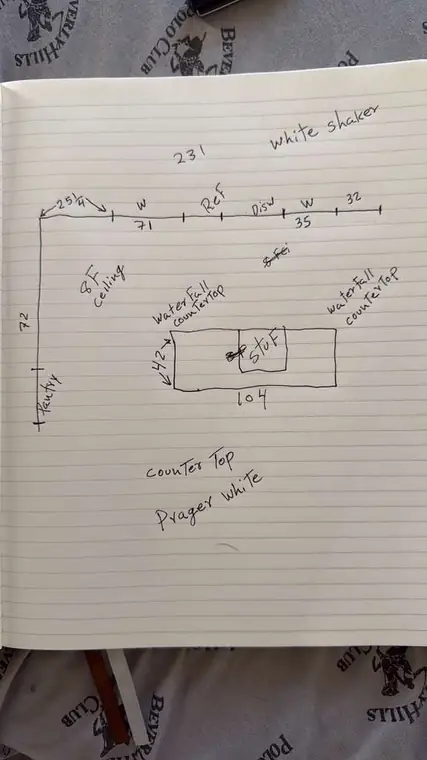 BEVERLY HILLS
POLO CLUB
white shaker
231
25 1/4
W
Ref
Disw
W
32
71
35
8F
ceiling
72
waterfall
counterTop
waterfall
counterTop
42
STUF
104
Pantry
counter Top
Prager white
BEVERLY HILLS
POLO CLUB